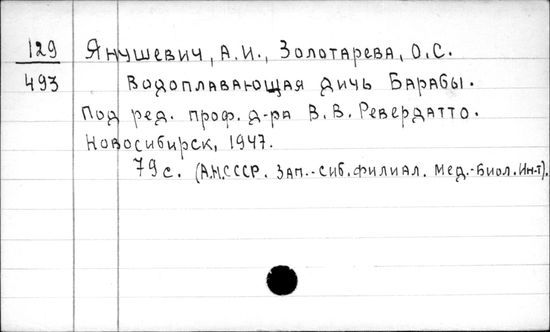 129 Янушевич, А.И., Золотарева, О.С.
493 Водоплавающая дичь Барабы.
Под ред. проф. д-ра В.В. Ревердатто.
Новосибирск, 1947.
79 с. (А.Н.СССР. Зап.-Сиб.филиал. Мед.-Биол.Ин-т).